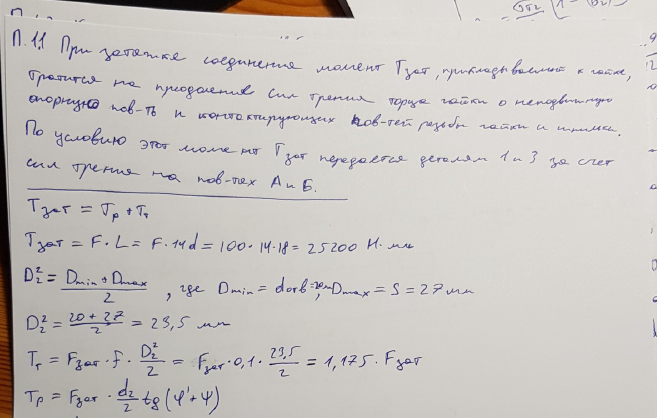 П.1.1 При затяжке соединения момент Tзат, прикладываемый к гайке,
тратится на преодоление сил трения торца гайки о неподвижную
опорную пов-ть и контактирующих пов-тей резьбы гайки и шпильки.
По условию этот момент Tзат передается деталям 1 и 3 за счет
сил трения на пов-тях А и Б.
Tзат = Tр + Tт
Tзат = F · L = F · 14d = 100 · 14 · 18 = 25200 Н·мм
D₂² = (Dmin + Dmax)/2 , где Dmin = dотв = 20мм, Dmax = S = 27 мм
D₂² = (20 + 27)/2 = 23,5 мм
Tт = Fзат · f · D₂²/2 = Fзат · 0,1 · 23,5/2 = 1,175 · Fзат
Tр = Fзат · d₂/2 tg(φ' + ψ)